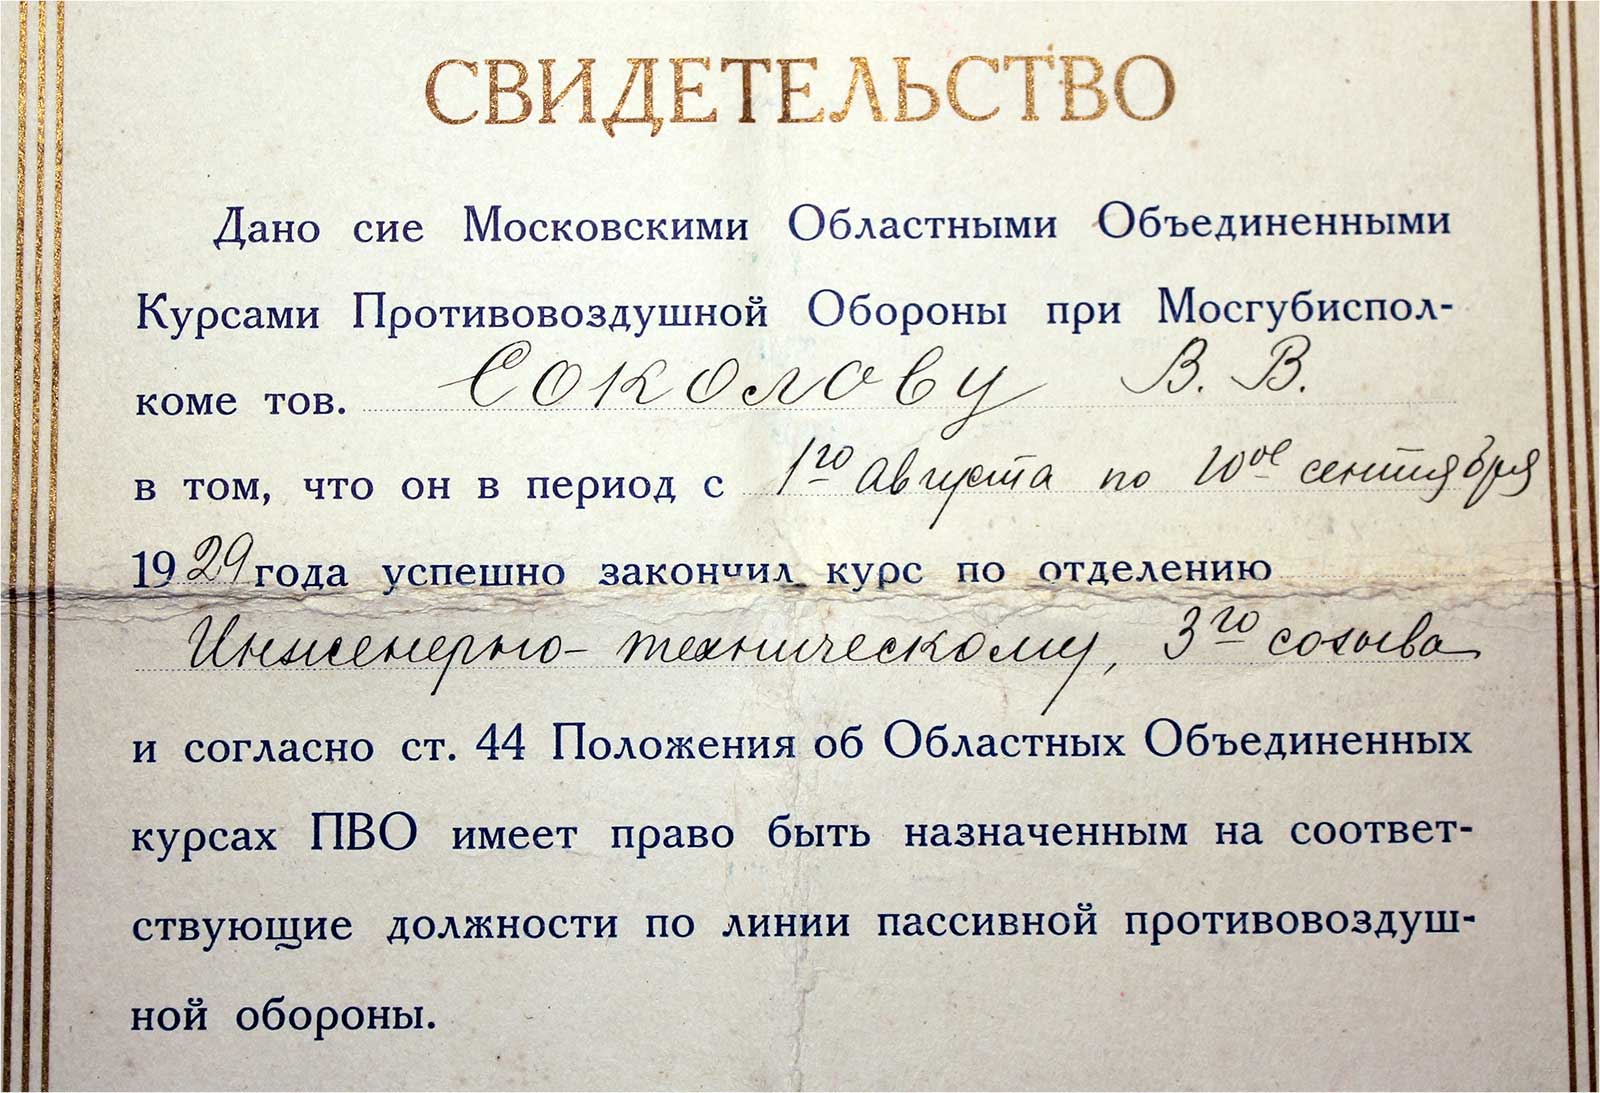 СВИДЕТЕЛЬСТВО
Дано сие Московскими Областными Объединенными
Курсами Противовоздушной Обороны при Мосгубиспол-
коме тов. Соколову В. В.
в том, что он в период с 1го августа по 10ое сентября
1929 года успешно закончил курс по отделению
Инженерно-техническому, 3го созыва
и согласно ст. 44 Положения об Областных Объединенных
курсах ПВО имеет право быть назначенным на соответ-
ствующие должности по линии пассивной противовоздуш-
ной обороны.